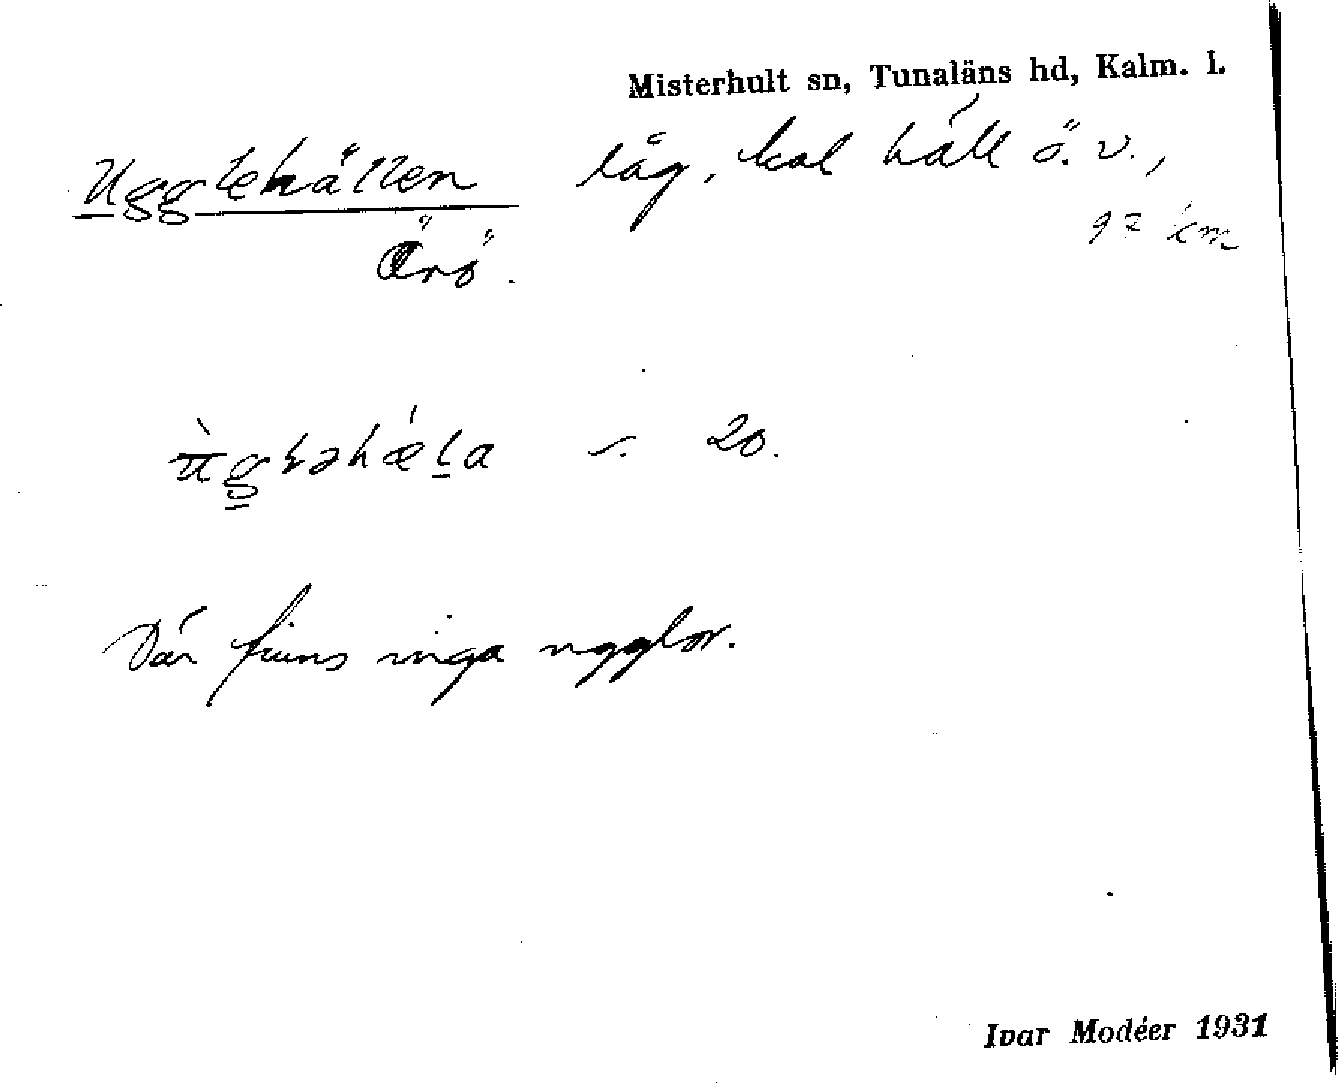 Misterhult sn, Tunaläns hd, Kalm. l.
Ugglehällen låg, kal häll ö. v.,
Örö.
20.
Där finns inga ugglor.
Ivar Modéer 1931